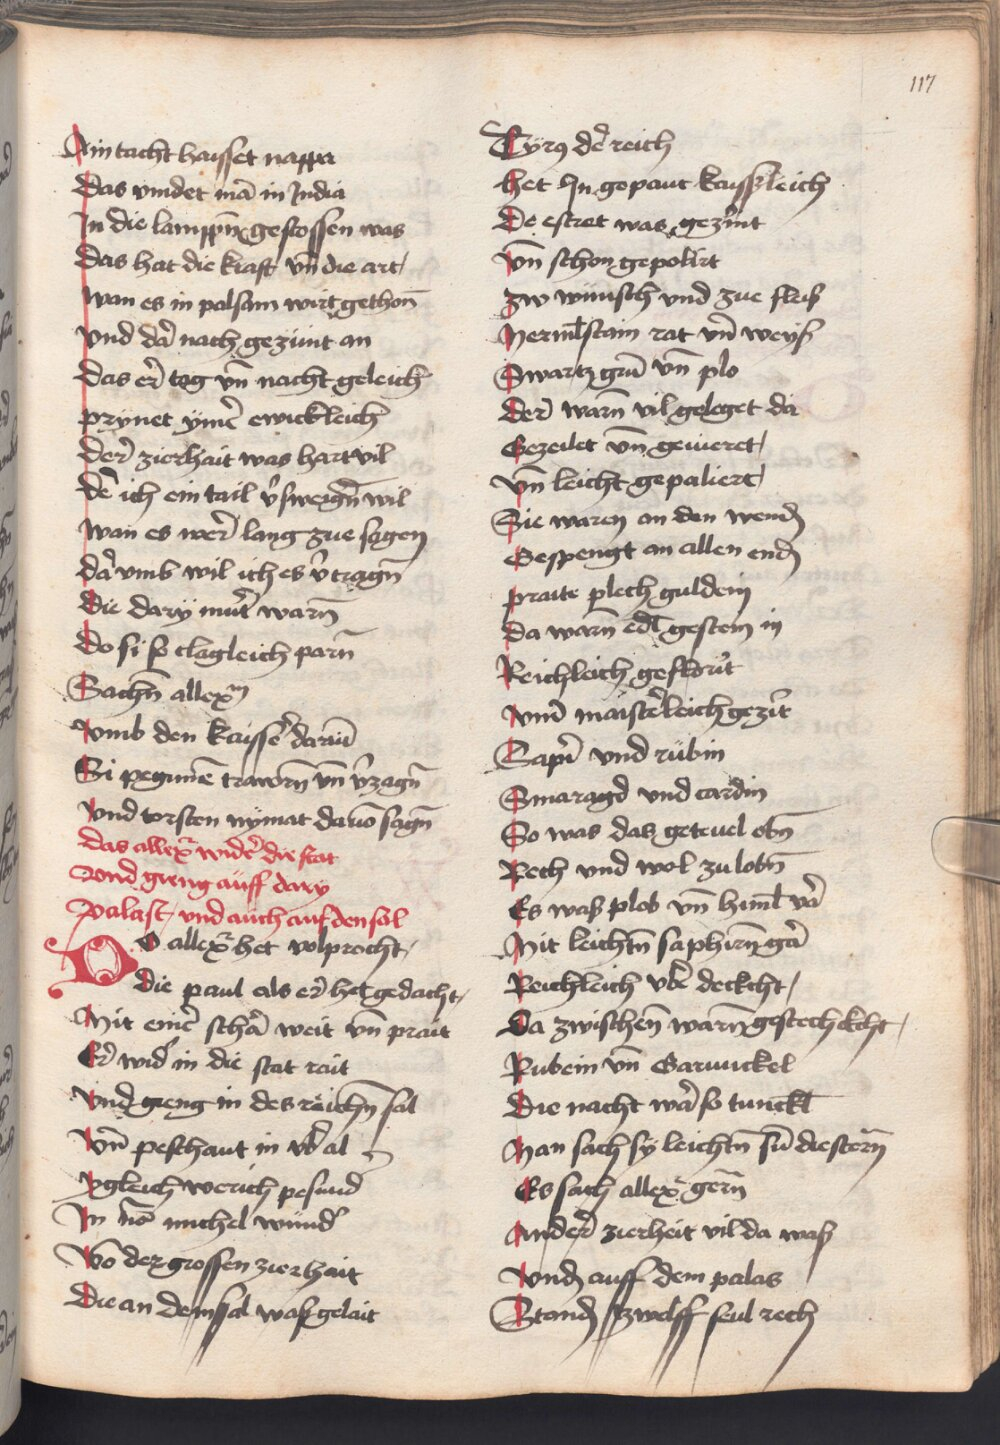 117
Ain tacht haisset nappta
Das vindet mā in India
In die lamppn̄ gestossen was
Das hat die kraft vn̄ die art
Wan es in palsam wirt gethon
vnd dar̄ nach gezünt an
Das er̄ tog vn̄ nacht geleich
prynet ym̄er ewickleich
Der̄ zierhait was hart vil
Der̄ ich ein tail v̄sweign̄ wil
Wan es wer̄ lang zue sagen
dar̄ vmb wil ich es v̄tragn̄
Die dary mut̄ warn̄
Do si so clagleich parn̄
Sachn̄ allexr̄
vmb den kaisser̄ dariū
Si pegunē trawrn̄ vn̄ v̄zagn̄
vnd torsten nymat dauō sagn̄
Das allexr̄ wider̄ die stat
vnd gieng auff dary
Palast vnd auch auf den sal
DO allexr̄ het volprocht
die paul als er̄ het gedacht
Mit einer̄ schar̄ weit vn̄ prait
Er̄ wider̄ in die stat rait
vnd gieng in des reichn̄ sal
vn̄ peschaut in vber̄ al
ygleich werich pesund̄
In nā michel wund̄
vō der grossen zierhait
Die an dem sal was gelait
Tyrus der̄ reich
het In gepaut kaisserleich
De estret was gezirnt
vn̄ schon gepolirt
zw wunsch vnd zue fleis
Mermelstain rat vn̄ weys
Swartz grun̄ vn̄ plo
der̄ warn̄ vil geleget da
Gezeilet vn̄ geuieret
vn̄ leicht gepaliert
Sie waren an den wend
Gespengt an allen end
praite plech guldein
da warn̄ edl gestein in
Reichleich gefloriert
vnd maister̄leich gezirt
Saper̄ vnd rubin
Smaragd vnd cardin
So was das geteuel obn̄
Rech vnd wol zu lobn̄
Es was plob vn̄ himel var̄
Mit leichtn̄ saphirn̄ gar̄
Reichleich vber̄ deckcht
Da zwischen warn̄ gestechkcht
Rubein vn̄ Garuuckel
Die nacht war̄ so tunckl
Man sach sy leichtn̄ sūm die stern̄
Es sach allexr̄ gern̄
Ander̄ zierheit vil da was
vnd auff dem palas
Stand zwelff seul rech